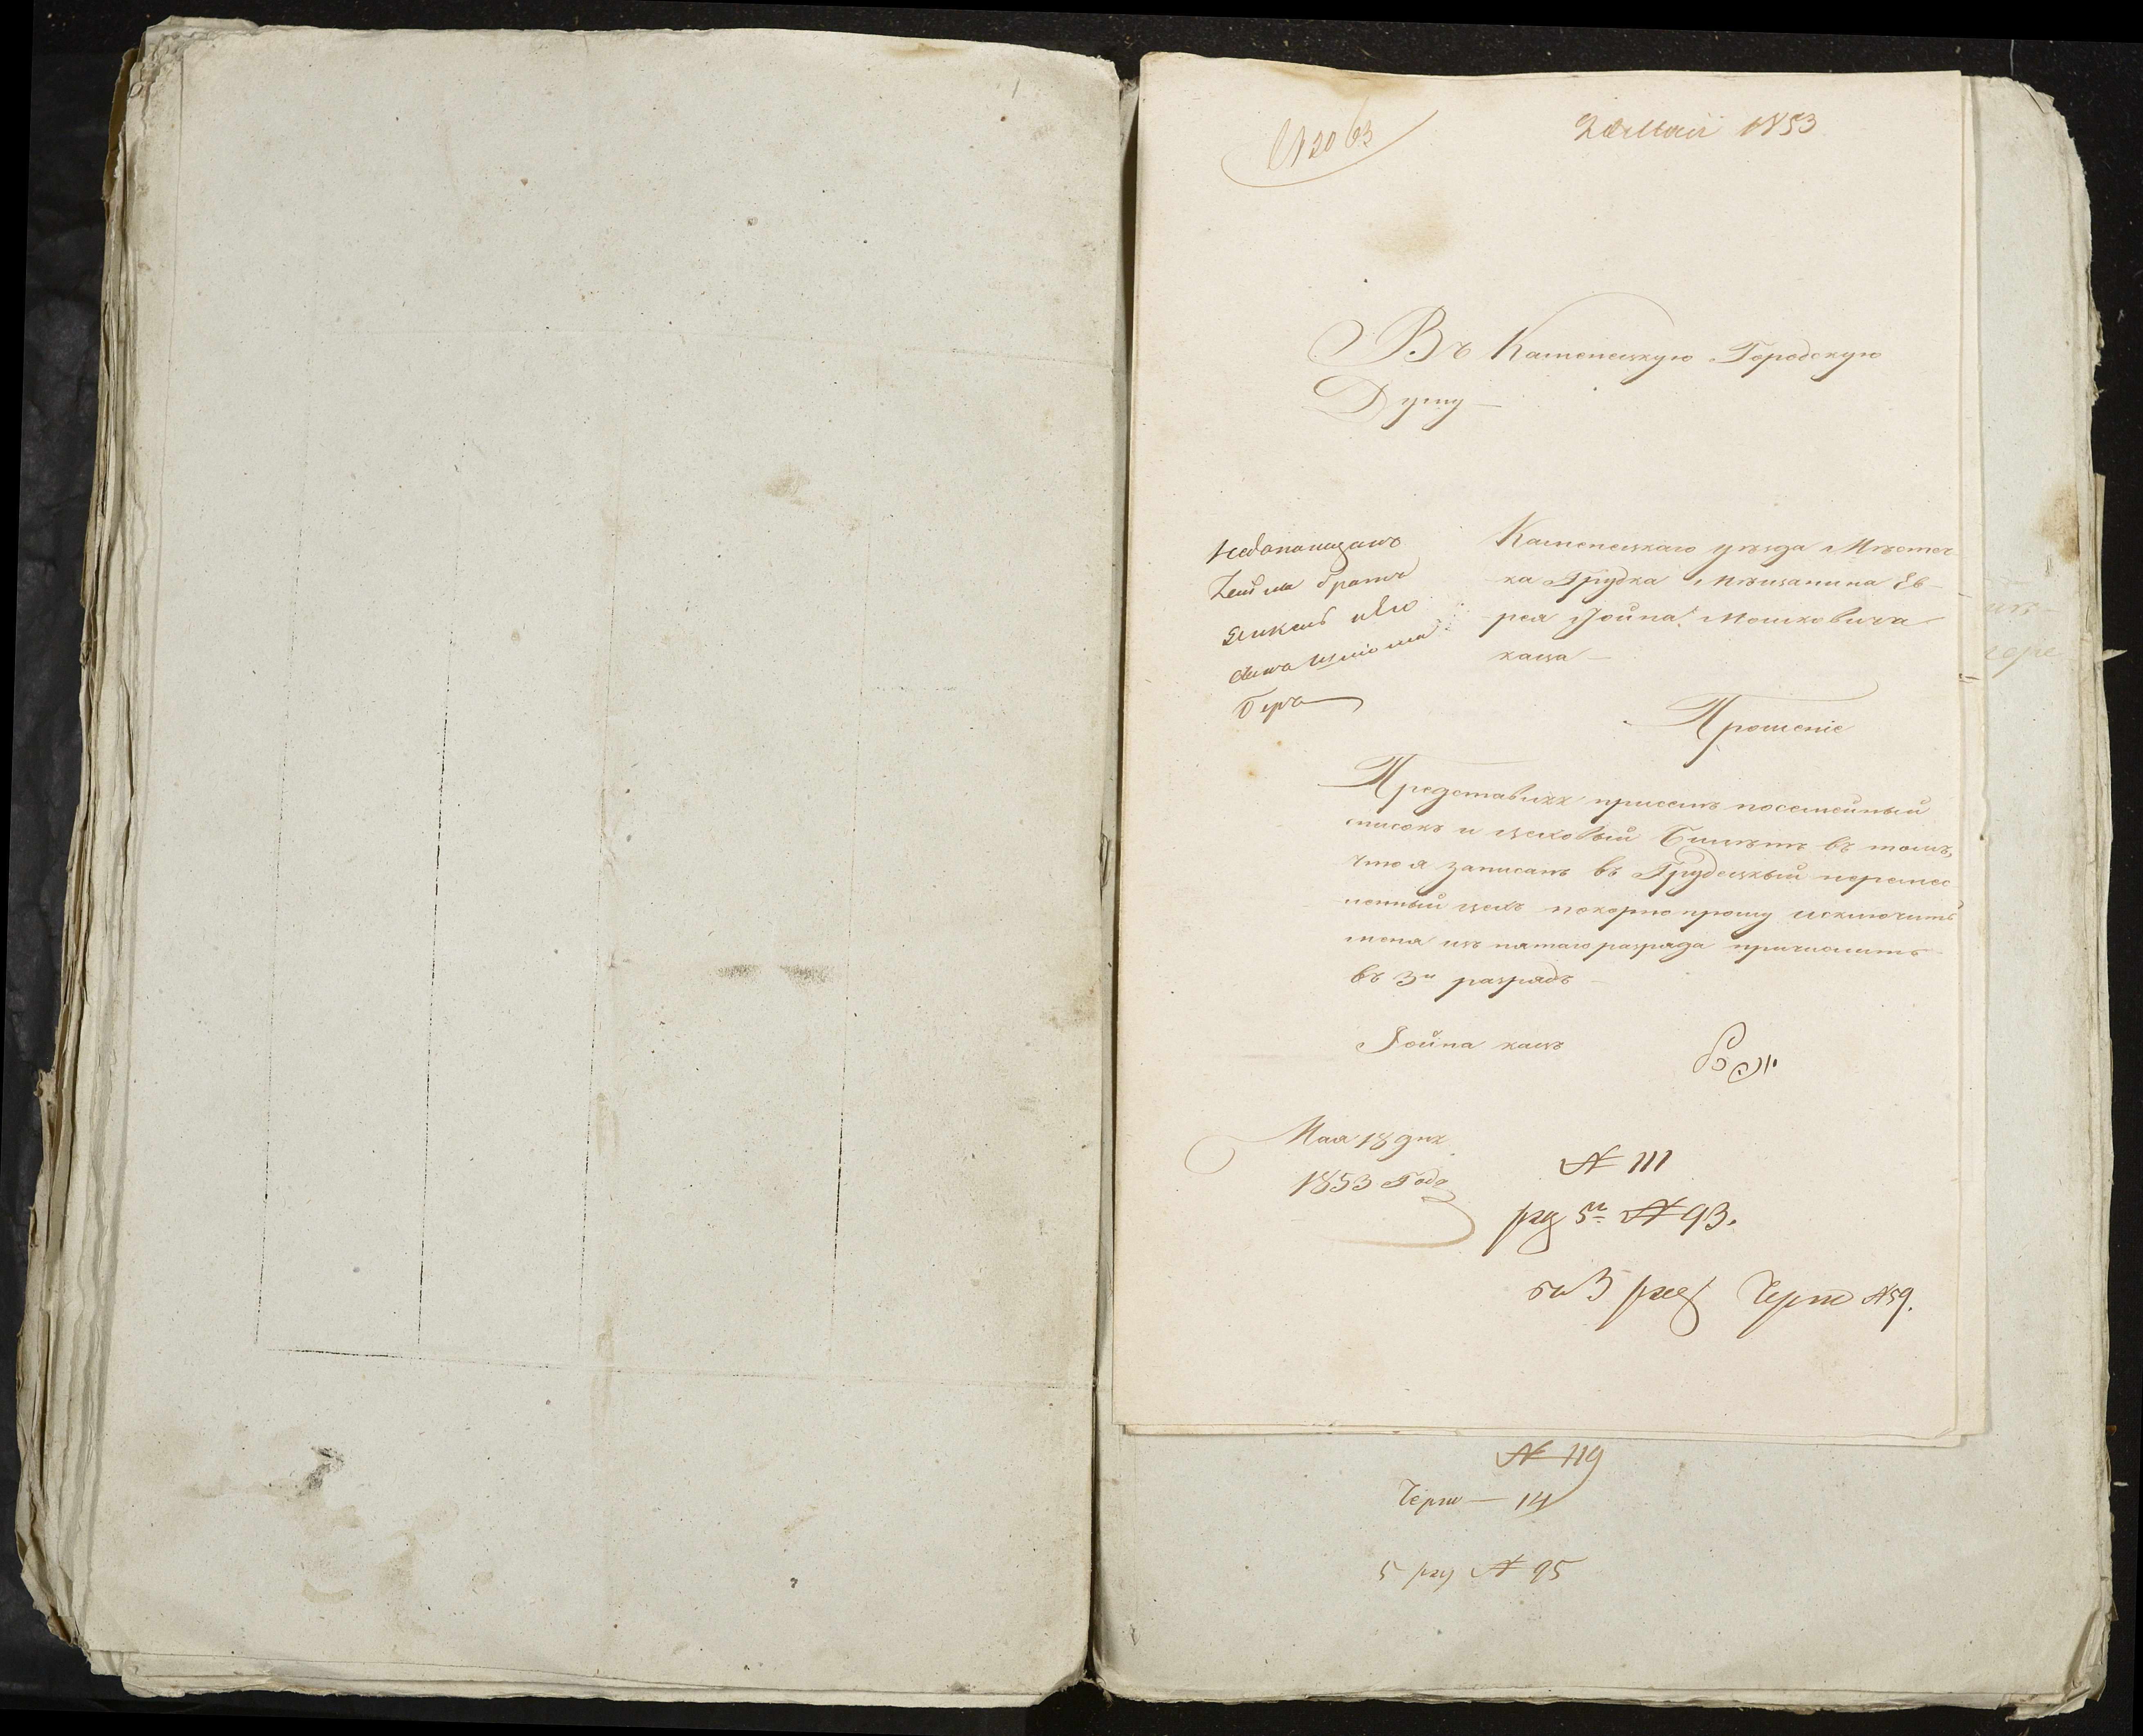 № 2063
20 Мая 1853
Въ Каменецкую Городскую
Думу —
Каменецкаго уѣзда Мѣстеч
ка Грудка Мѣщанина Ев
рея Іойна Мошковича
каца —
брата
его
сына
Беръ
Прошеніе
Представляя присемъ посемейный
списокъ и цеховый Билетъ въ томъ,
что я записанъ въ Грудецкый ремес
ленный цехъ покорно прошу исключить
меня изъ пятаго разряда причислить
въ 3й разрядъ —
Іойна кацъ
Мая 18 дня
1853 Года
№ 111
рзд 5й № 93.
3 рзд Черт №59.
№ 119
Черт — 14
5 рзд № 95